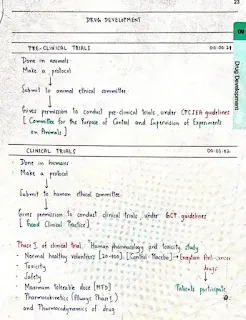 23
DRUG DEVELOPMENT
Drug Development
PRE-CLINICAL TRIALS
00:00:31
Done in animals
Make a protocol
↓
Submit to animal ethical committee
↓
Gives permission to conduct pre-clinical trials, under CPCSEA guidelines
[Committee for the Purpose of Control and Supervision of Experiments
on Animals]
CLINICAL TRIALS
Done in humans
Make a protocol
↓
Submit to human ethical committee
↓
Gives permission to conduct clinical trials, under GCT guidelines
[Good Clinical Practice]
Phase I of clinical trial: Human pharmacology and toxicity study
• Normal healthy volunteers [20-100] [Control: Placebo] → Exception: Anti-cancer
drugs
• Toxicity
↓
• Safety
Patients participate
• Maximum tolerable dose [MTD]
• Pharmacokinetics (Always Phase I)
and Pharmacodynamics of drug